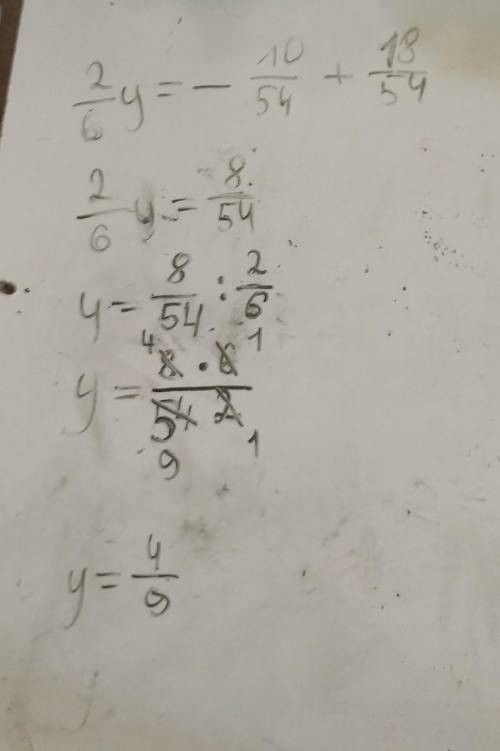 2/6 y = - 10/54 + 18/54
2/6 y = 8/54
y = 8/54 : 2/6
y = (8 · 6)/(54 2) 4 1 9 1
y = 4/9